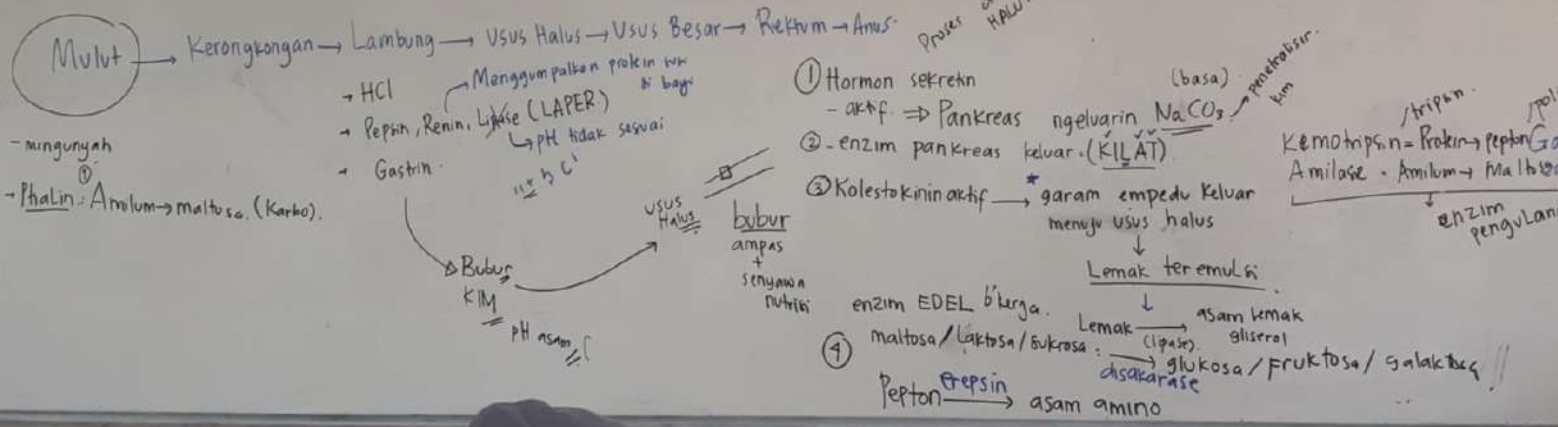 Mulut → Kerongkongan → Lambung → Usus Halus → Usus Besar → Rektum → Anus.
- mengunyah
→ Phalin : Amilum → maltosa. (Karbo).
→ HCl
→ Pepsin, Renin, Lipase (LAPER)
→ Menggumpalkan protein
bayi
↳ pH tidak sesuai
→ Gastrin.
Bubur
KIM
pH asam
usus
Halus
bubur
ampas
+
senyawa
nutrisi
Proses
HALU
① Hormon sekretin
- aktif. ⇒ Pankreas ngeluarin NaCO3
(basa)
penetralisir.
kim
② - enzim pankreas keluar. (KILAT)
③ Kolestokinin aktif → * garam empedu keluar
menuju usus halus
↓
Lemak teremulsi
↓
Lemak → (lipase). asam lemak
gliserol
enzim EDEL b'kerja.
④ maltosa/Laktosa/Sukrosa : → disakarase glukosa/Fruktosa/galaktosa !!
Pepton erepsin → asam amino
/tripsin.
/pol
Kemotripsin = Protein → pepton
Amilase . Amilum → Maltosa
enzim